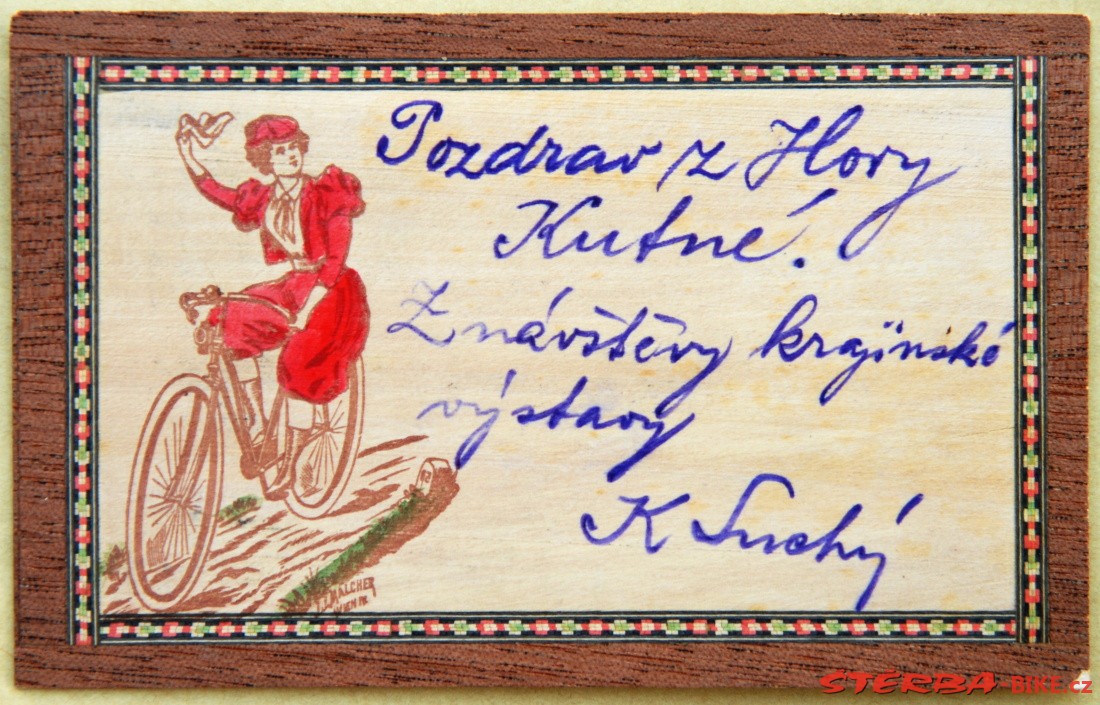 Pozdrav z Hory
Kutné!
Z návštěvy krajinské
výstavy
K Suchý
F. J. MALCHER
WIEN IV.
ŠTĚRBA-BIKE.cz